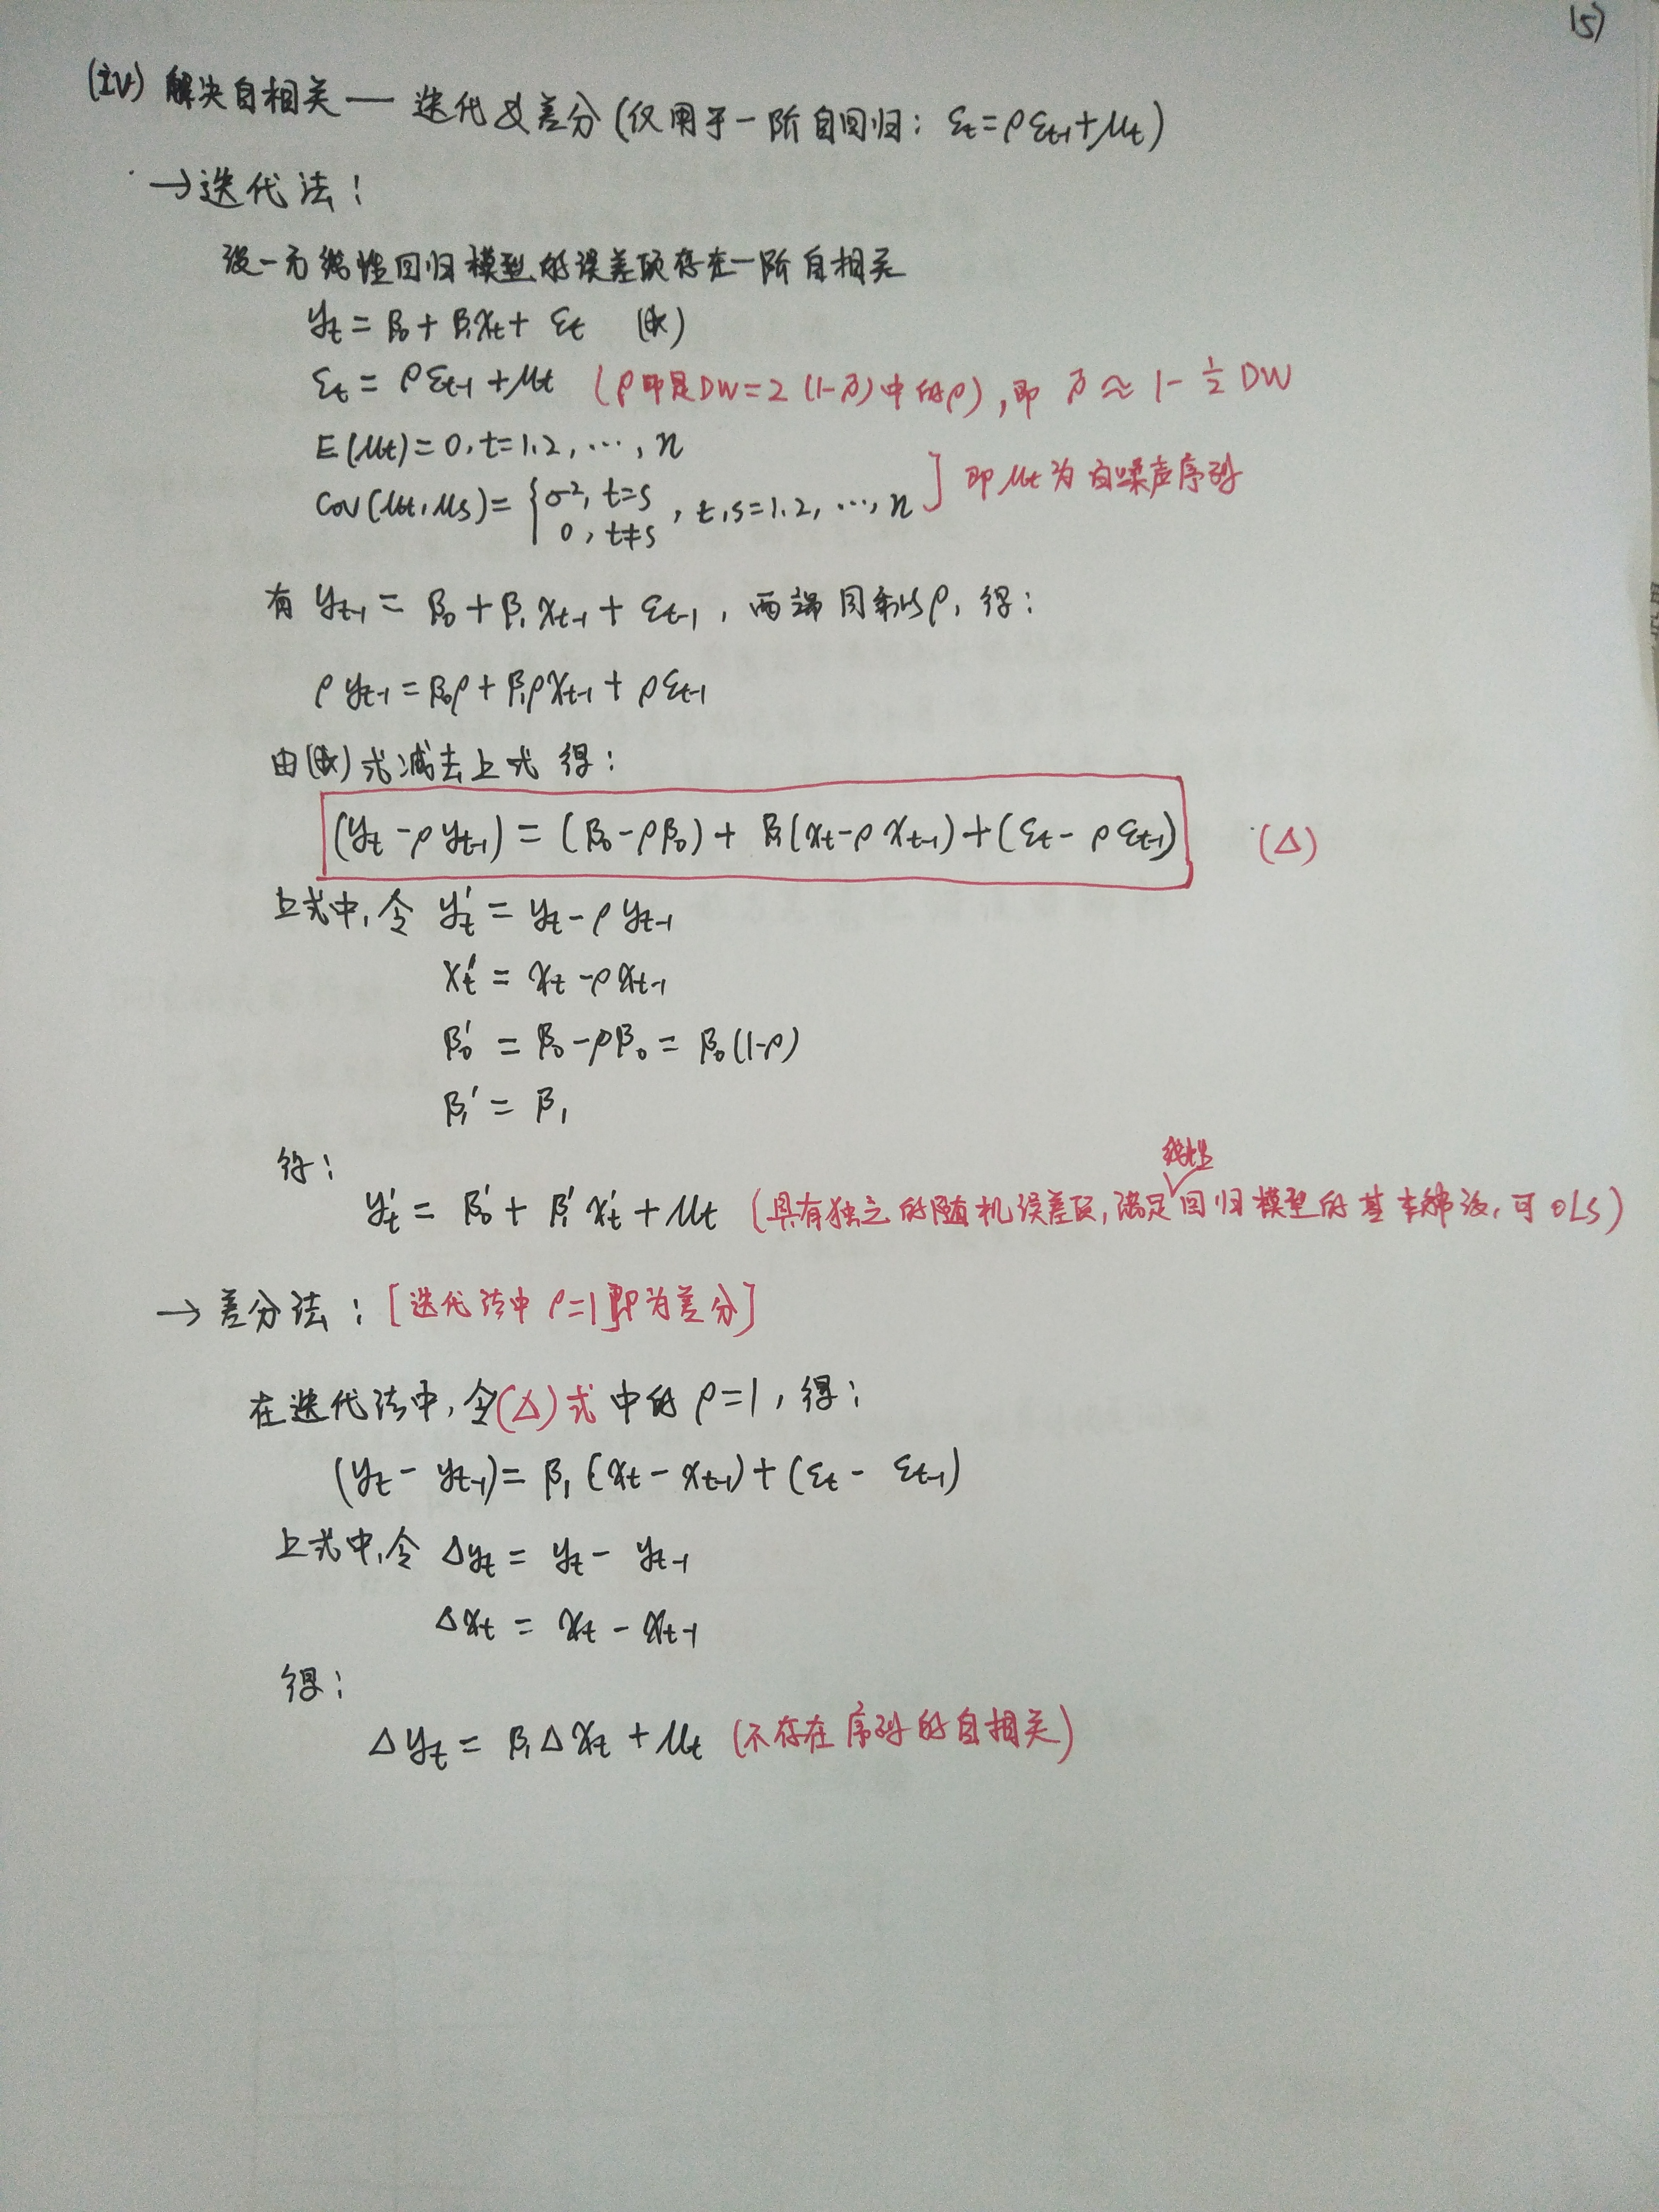 15)
(iv) 解决自相关 — 迭代及差分 (仅用于一阶自回归: εt = ρεt-1 + μt)
→ 迭代法:
设一元线性回归模型的误差项存在一阶自相关
yt = β0 + β1xt + εt (*)
εt = ρεt-1 + μt (ρ即是DW=2(1-ρ̂)中的ρ), 即 ρ̂ ≈ 1 - 1/2 DW
E(μt) = 0, t=1,2, ⋯, n
Cov(μt, μs) = { σ², t=s 0, t≠s , t,s=1,2, ⋯, n ] 即 μt 为白噪声序列
有 yt-1 = β0 + β1xt-1 + εt-1, 两端同乘以ρ, 得:
ρyt-1 = β0ρ + β1ρxt-1 + ρεt-1
由(*)式减去上式得:
(yt - ρyt-1) = (β0 - ρβ0) + β1(xt - ρxt-1) + (εt - ρεt-1) (Δ)
上式中, 令 yt' = yt - ρyt-1
xt' = xt - ρxt-1
β0' = β0 - ρβ0 = β0(1-ρ)
β1' = β1
得:
yt' = β0' + β1'xt' + μt (具有独立的随机误差项, 满足线性回归模型的基本假设, 可OLS)
→ 差分法: [迭代法中 ρ=1即为差分]
在迭代法中, 令(Δ)式中的 ρ=1, 得:
(yt - yt-1) = β1(xt - xt-1) + (εt - εt-1)
上式中, 令 Δyt = yt - yt-1
Δxt = xt - xt-1
得:
Δyt = β1Δxt + μt (不存在序列的自相关)